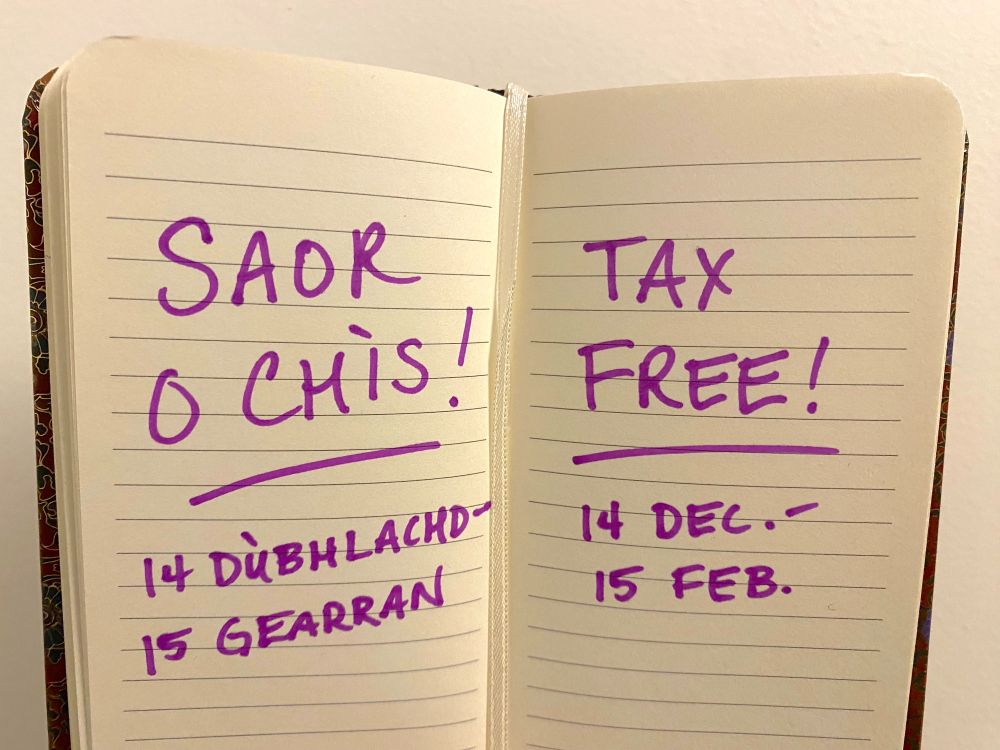 SAOR
O CHÌS!
14 DÙBHLACHD-
15 GEARRAN
TAX
FREE!
14 DEC.-
15 FEB.